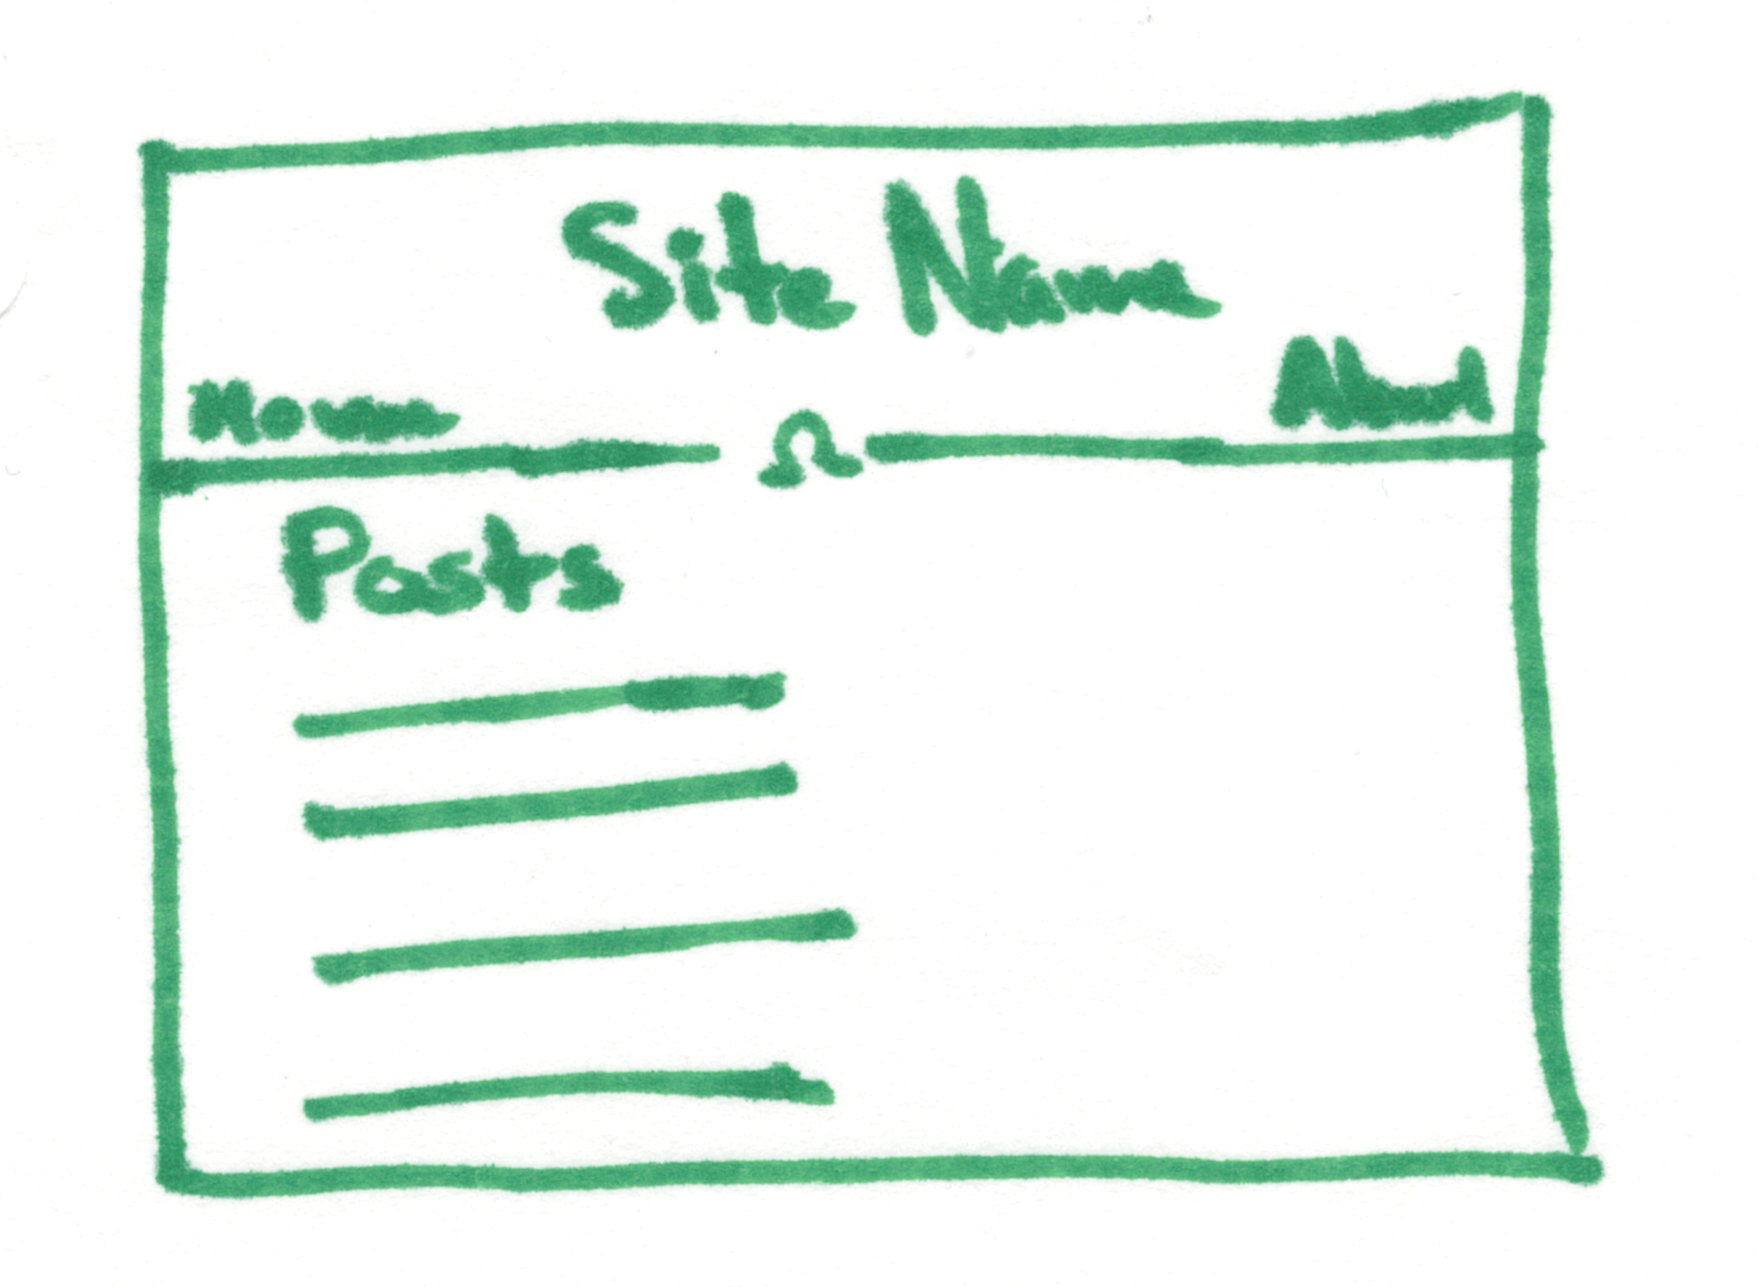 Site Name
Home About
Ω
Posts